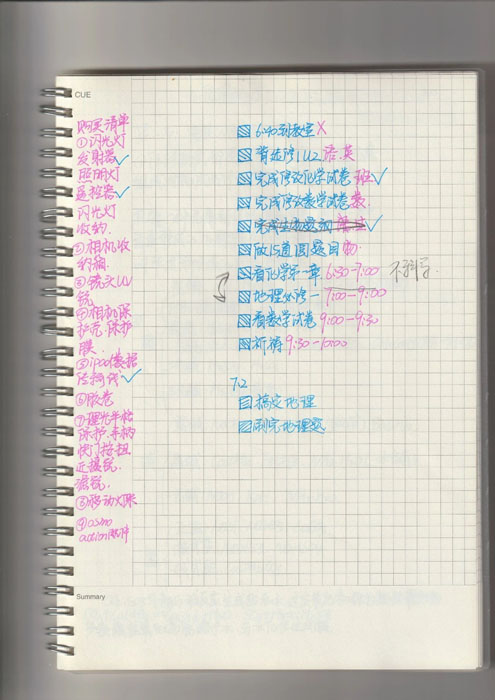 CUE
购买清单
①闪光灯
发射器✓
照明灯
遥控器✓
闪光灯
收纳.
②相机收
纳箱.
③镜头UV
镜
④相机保
护壳.保护
膜.
⑤ipod数据
⑥胶卷
保护.手柄
快门按钮
近摄镜.
滤镜.
⑧移动火锅
⑨osmo
action配件
6:40到教室X
背必修1U2 语.英
完成修改化学试卷 班✓
完成修改数学试卷
✓
做15道圆题目 物.
看化学第一章 6:30-7:00
地理必修一 7:00-9:00
看数学试卷 9:00-9:30
祈祷 9:30-10:00
7.2
搞定地理
刷完地理题
Summary